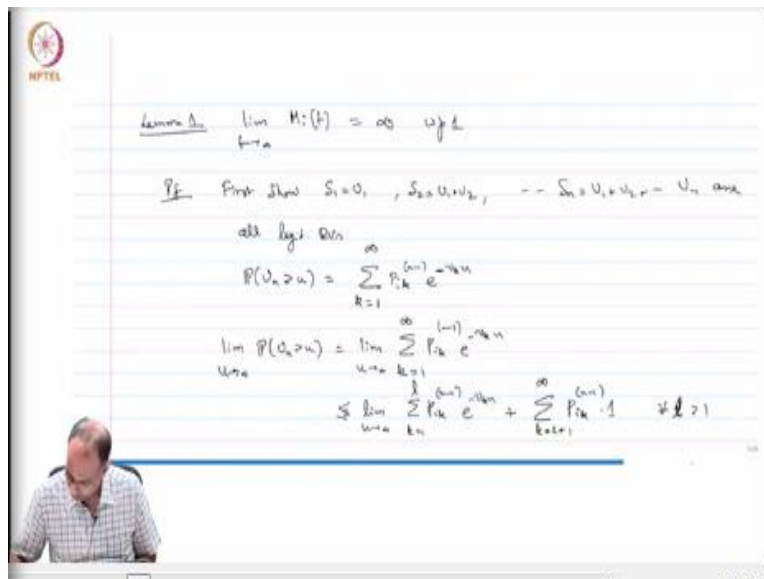 NPTEL
Lemma 1. lim_{t→∞} M_i(t) = ∞ wp 1
Pf First show S_1 = U_1, S_2 = U_1+U_2, -- S_n = U_1+U_2+-- U_n are
all legit RVs
P(U_n > u) = ∑_{k=1}^{∞} P_{ik}^{(n-1)} e^{-ν_k u}
lim_{u→∞} P(U_n > u) = lim_{u→∞} ∑_{k=1}^{∞} P_{ik}^{(n-1)} e^{-ν_k u}
≤ lim_{u→∞} ∑_{k=1}^{l} P_{ik}^{(n-1)} e^{-ν_k u} + ∑_{k=l+1}^{∞} P_{ik}^{(n-1)} · 1 ∀ l ≥ 1